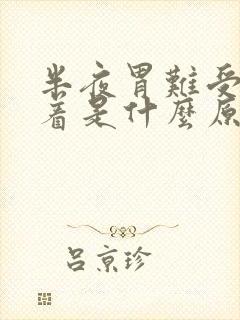 半夜胃難受
着是什麼原
呂京珍